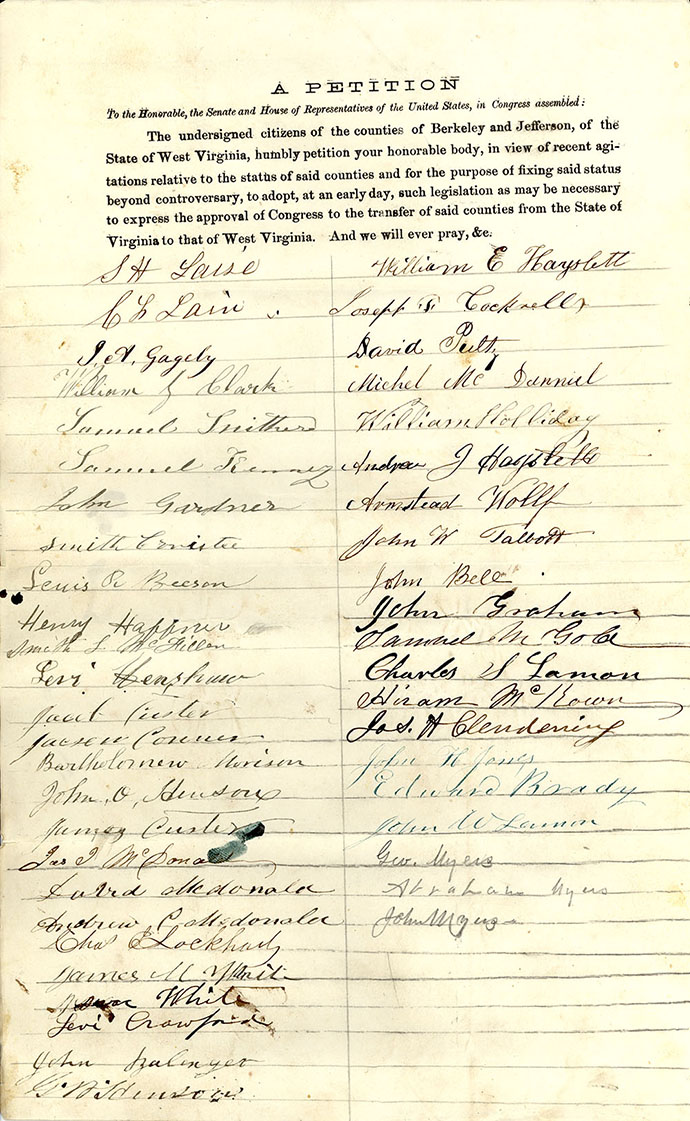 A PETITION
To the Honorable, the Senate and House of Representatives of the United States, in Congress assembled:
The undersigned citizens of the counties of Berkeley and Jefferson, of the
State of West Virginia, humbly petition your honorable body, in view of recent agi-
tations relative to the status of said counties and for the purpose of fixing said status
beyond controversary, to adopt, at an early day, such legislation as may be necessary
to express the approval of Congress to the transfer of said counties from the State of
Virginia to that of West Virginia. And we will ever pray, &c.
S H Laise
C L Lain
J. A. Gageby
William J Clark
Samuel Smithers
Samuel
John Gardner
Smith Cristee
Lewis R Beeson
Henry Haffner
Smith S McMillen
Levi Henshaw
Jacob Custer
Jackson Conner
Bartholomew Morison
John, O, Henson
James Custer
Jas J McDona
David Mcdonald
Andrew C Mcdonald
Chas Lockhart
James M White
White
Levi Crawford
John
Henson
William E Hayslett
Joseph Cockrell
David Pultz
Michel Mc Danniel
William Holliday
Andrew J Hayslett
Armstead Wolff
John W Talbott
John Bell
John Graham
Samuel M Gold
Charles S Lamon
Hiram McKown
Jas. H Clendening
John H Jones
Edward Brady
John W Lamon
Geo. Myers
Abraham Myers
John Myers